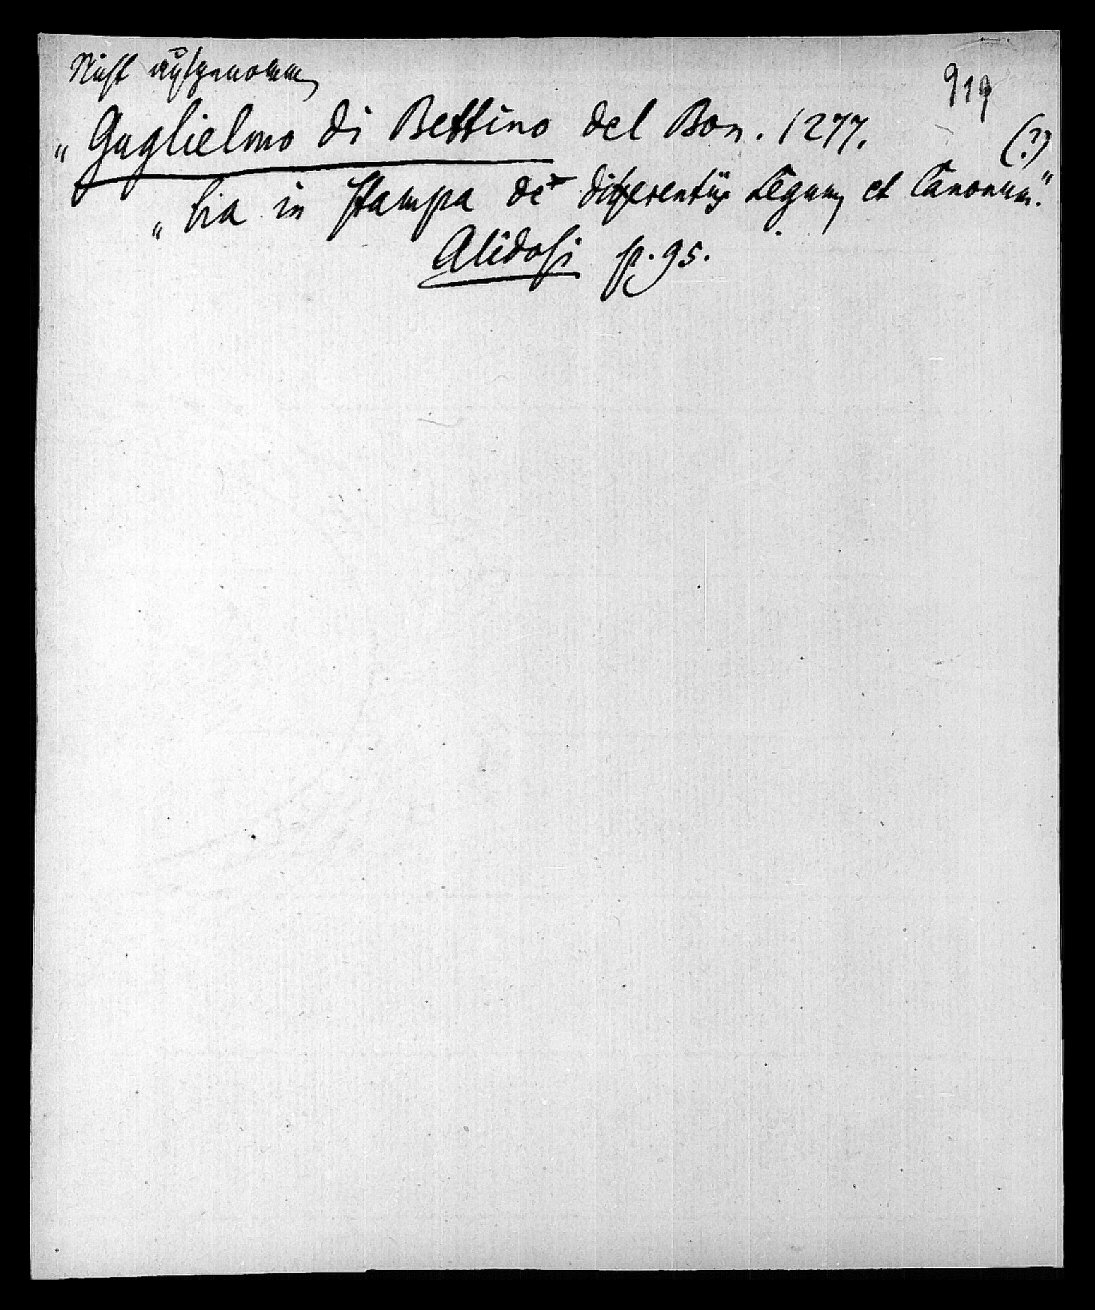 Nicht aufgenommen
919
„Guglielmo di Bettino del Bon. 1277.
(?)
„ha in stampa de differentijs Legum et Canonum."
Alidosi p. 95.